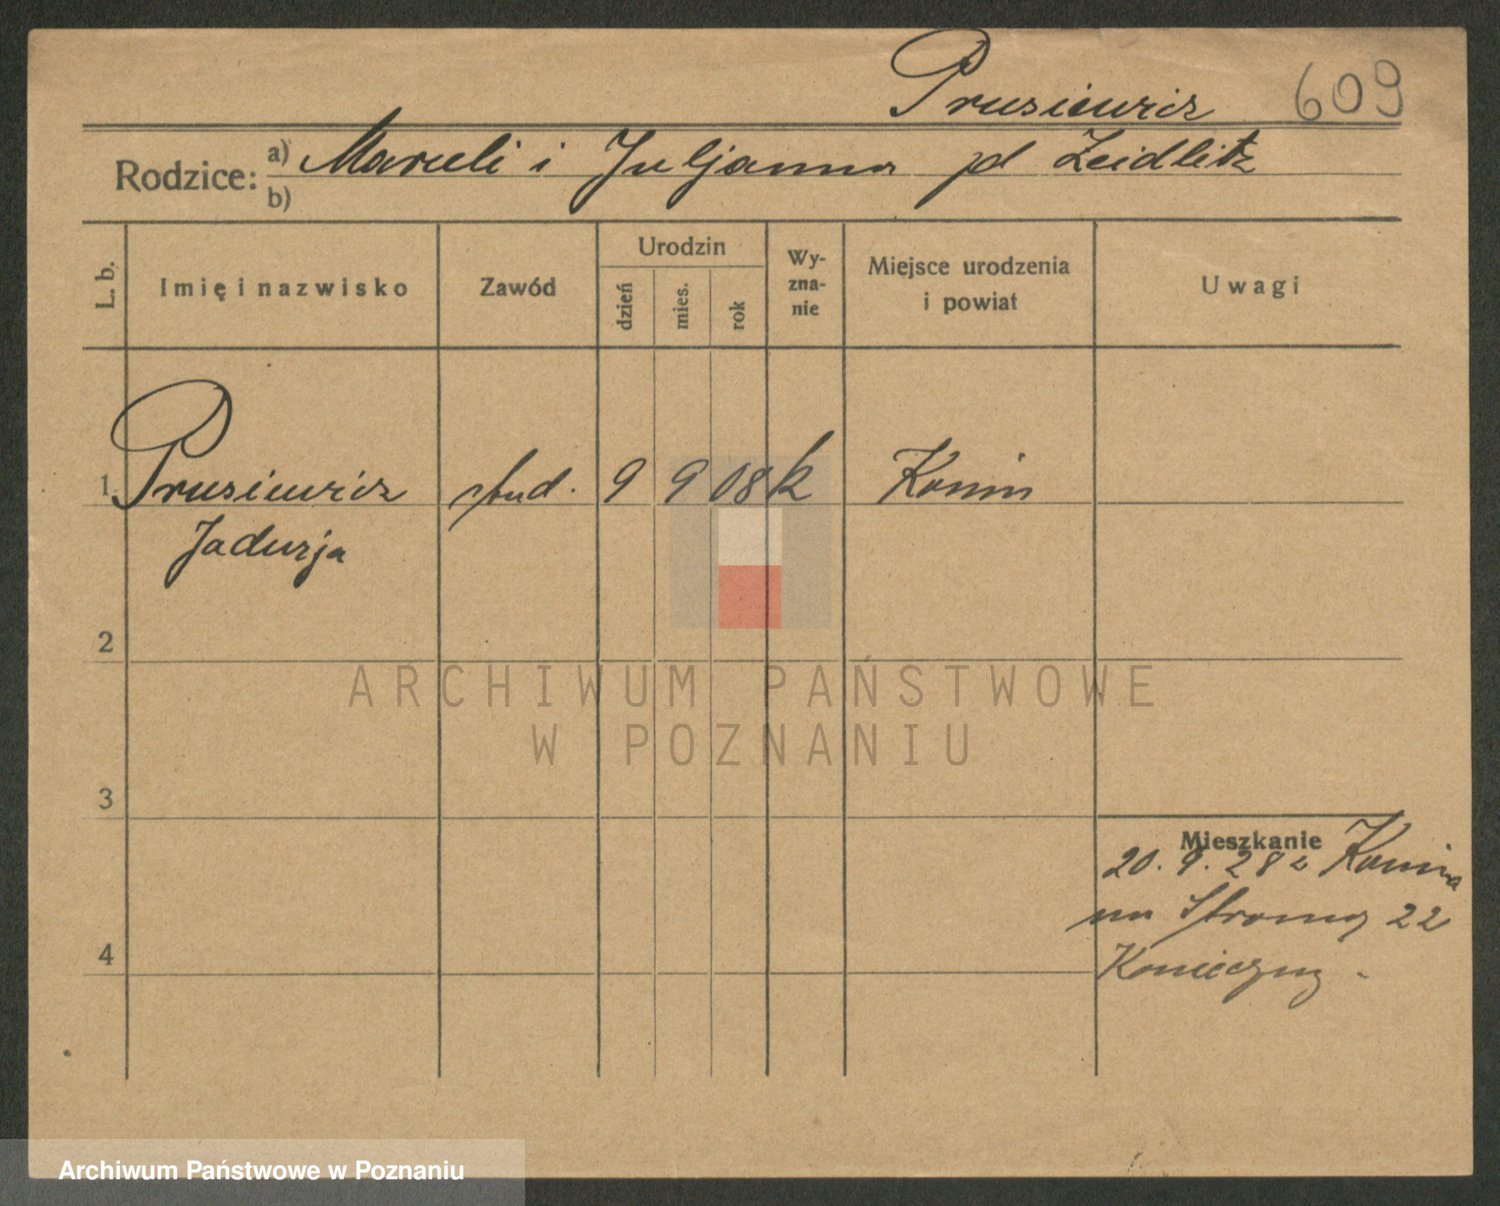 Prusiewicz 609
Rodzice: a) Marceli i Juljanna zd Zeidlitz
b)
L. b. Imię i nazwisko Zawód Urodzin dzień mies. rok Wy-zna-nie Miejsce urodzenia i powiat Uwagi
1. Prusiewicz stud. 9 9 08 k Konin
Jadwiga
2
3
Mieszkanie
20. 9. 28 z Konina
na Stromą 22
4
ARCHIWUM PAŃSTWOWE
W POZNANIU
Archiwum Państwowe w Poznaniu